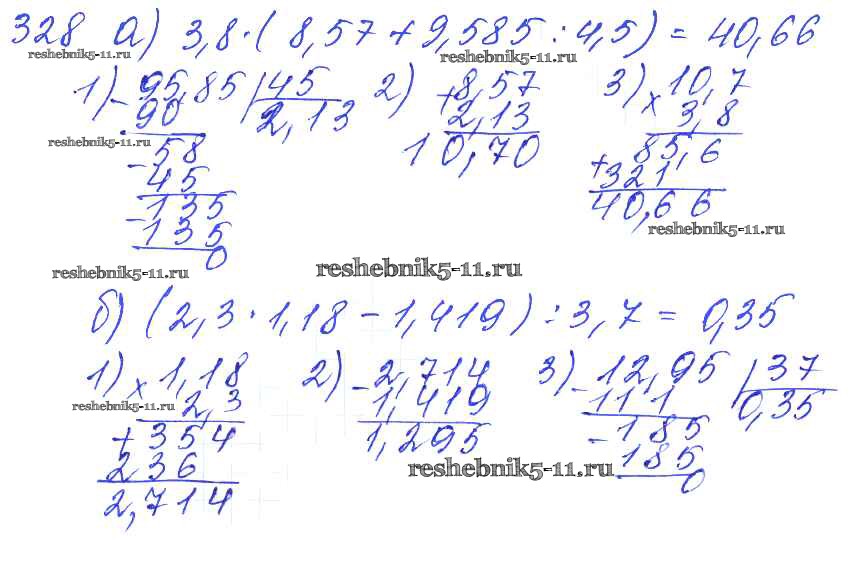 328 а) 3,8·(8,57+9,585:4,5)=40,66
reshebnik5-11.ru reshebnik5-11.ru
1) 95,85 | 45 2) 8,57 3) 10,7
- 90 2,13 + 2,13 × 3,8
reshebnik5-11.ru
- 58 10,70 85,6
45 + 321
- 135 40,66
135 reshebnik5-11.ru
0
reshebnik5-11.ru reshebnik5-11.ru
б) (2,3·1,18-1,419):3,7=0,35
1) × 1,18 2) - 2,714 3) - 12,95 | 37
reshebnik5-11.ru 2,3 1,419 111 0,35
+ 354 1,295 - 185
236 185
reshebnik5-11.ru 0
2,714